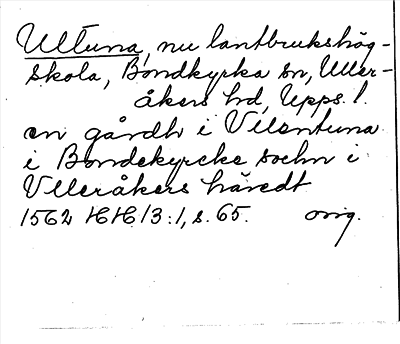 Ultuna, nu lantbrukshög-
skola, Bondkyrka sn, Uller-
åkers hd, Upps. l.
en gårdh i Vlentuna
i Bondekyrcke sochn i
Vlleråkers häredt
1562 HH 13:1, s. 65. orig.